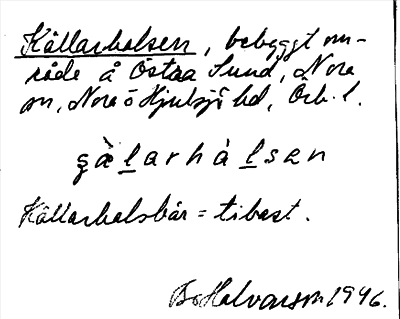 Källarhalsen, bebyggt om-
råde å Östra Sund, Nora
sn, Nora o Hjulsjö bd, Örb. l.
ꞩälarhàlsen
Källarhalsbär = tibast.
Bo Halvarson 1946.